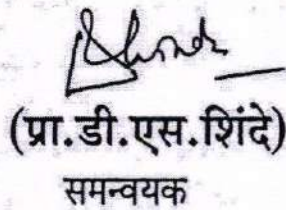 (प्रा.डी.एस.शिंदे)
समन्वयक